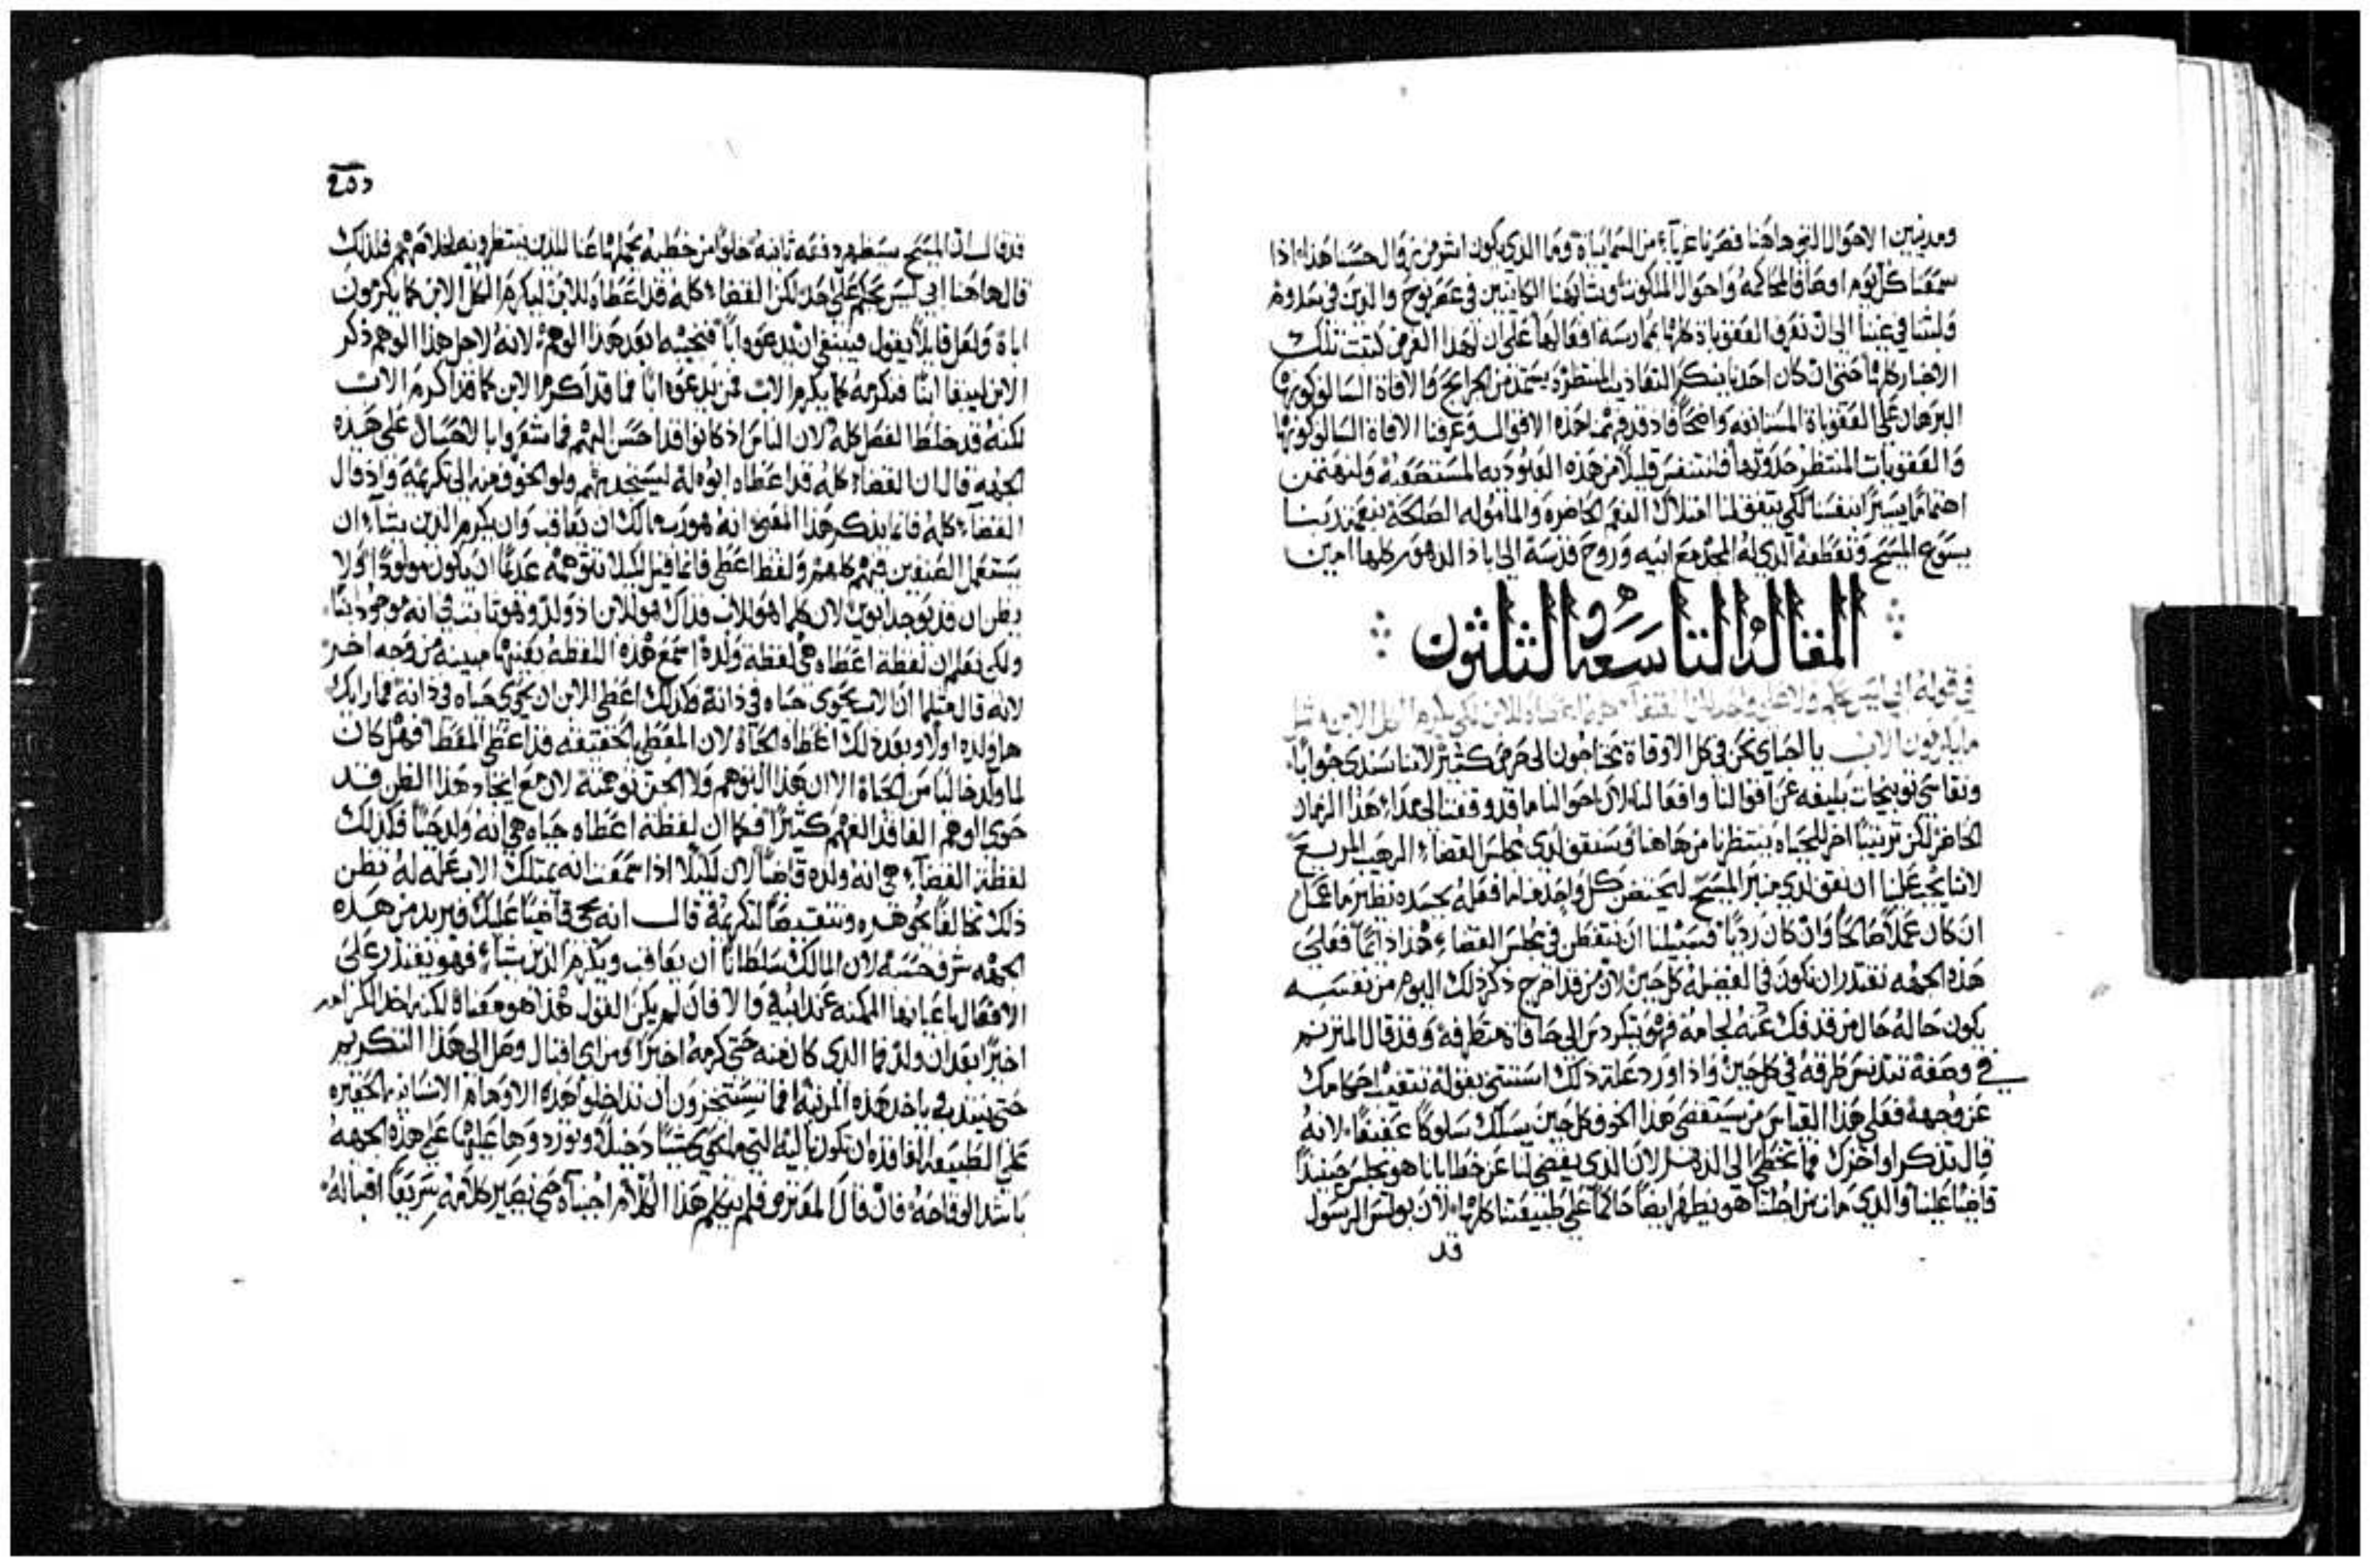 ومدنيين الاحوال التي هاهنا فصرنا غرباء من السمايياة وما الذي يكون اشر من زوال حسنا هذا اذا
سمعنا كل يوم اوصاف المحاكمه واحوال الملكوت وتشابهنا الكاينين في عصر نوح والذين في سدوم
ولبثنا في غيبنا الى ان نعرف العقوباة كلها بممارسة افعالها على ان لهذا الغرض كتبت تلك
الاخبار كلها حتى ان كان احدنا ينكر التعاذيب المنتظرة يستمد من الحرايج والافاة السالف كونها
البرهان على العقوباة المستانفه واضحا فاذ قد فهمنا هذه الاقوال وعرفنا الافاة السالف كونها
والعقوبات المنتظر حدوثها فلنتنفس قليلا من هذه العبوديه المستصعبة ولنهتمن
اهتماما يسيرا بنفسنا لكي يتفق لنا امتلاك النعم الحاضرة والماموله الصالحة بنعمة ربنا
يسوع المسيح وتعطفه الذي له المجد مع ابيه وروح قدسه الى اباد الدهور كلها امين
المقالة التاسعة والثلثون
في قوله ابي ليس يحكم ولا على واحد لكن القضاء كله اعطاه للابن لكي يكرم الكل الابن مثل
ما يكرمون الاب يا احباي نحن في كل الاوقاة نحتاجون الى حرص كثير لاننا سندي جوابا
ونقاسي توبيخات بليغه عن اقوالنا وافعالنا لان احوالنا ما قد وقفت الى مدا هذا الزمان
الحاضر لكن ترتيبا اخر للحياه ينتظرنا من هاهنا وسنقف لدى مجلس القضاء الرهيب المريع
لاننا يجب علينا ان نقف لدى منبر المسيح ليحتضن كل واحد منا ما فعله بجسده نظير ما عمل
ان كان عملا صالحا وان كان رديا فسبيلنا ان نتفطن في مجلس القضاء هذا دائما فعلى
هذه الجهه نقتدر ان نكون في الفضيلة كل حين لان من قد اخرج ذكر ذلك اليوم من نفسه
يكون حاله حال من قد فك عنه لجامه فهو يتكردس الى حافاة هتطرفه وقد قال المترنم
في وصفه تتدنس طرقه في كل حين واذا اورد علة ذلك استثنى بقوله تنتفي احكامك
عن وجهه فعلى هذا القياس من يستقصى هذا الخوف كل حين يسلك سلوكا عفيفا لانه
قال تذكر اواخرك فما تخطي الى الدهر لان الذي يفضي لنا عن خطايانا هو يجلس حينيذا
قاضيا علينا والذي مات من اجلنا هو يظهر ايضا حاكما على طبيعتنا كلها لان بولس الرسول
قد
قد قال ان المسيح سيظهر دفعة ثانية خلوا من خطيه يحملها عنا للذين ينتظرونه لخلاصهم فلذلك
قال هاهنا ابي ليس يحكم على احد لكن القضاء كله قد اعطاه للابن ليكرم الكل الابن كما يكرمون
اباه ولعل قايلا يقول فينبغي ان ندعوه ابا فنجيبه ابعد هذا الوهم لانه لاجل هذا الوهم ذكر
الابن ليبقا ابنا فنكرمه كما يكرم الاب فمن يدعوه ابا فما قد اكرم الابن كما قد اكرم الاب
لكنه قد خلط الفصل كله لان الناس اذ كانوا قد احسن اليهم فما شعروا بالاحسان على هذه
الجهه قال ان القضاء كله قد اعطاه ابوه له ليستجذبهم ولو الخوف منه الى تكرمته واذ قال
القضاء كله فانما يذكر هذا المعنى انه هو رب مالك ان يعاقب وان يكرم الذين يشاء ان
يستعمل الصنفين فيهم كلاهم ولفظ اعطى فانما قيل لكيلا نتوهمه عدما ان يكون مولودا ولا
يظن ان قد يوجد ابوين لان كلما هو للاب فذاك هو للابن اذ ولد وهو ثابت في انه موجود ابنا
ولكي نعلم ان لفظة اعطاه هي لفظة ولده اسمع هذه اللفظة بعينها مبينة من وجه اخر
لانه قال مثلما ان الاب يحوى حياه في ذاته كذلك اعطى الابن ان يحوى حياه في ذاته فما رايك
هل ولده اولا وبعد ذلك اعطاه الحياة لان المعطى بالحقيقه قد اعطى المعطا فهل كان
لما ولد خاليا من الحياة الا ان هذا التوهم ولا الجن توهمته لان مع ايجاد هذا الظن قد
حوى الوهم الفاقد الفهم كثيرا فكما ان لفظة اعطاه حياه هي انه ولده حيا فكذلك
لفظة القضاء هي انه ولده قاضيا لان لكيلا اذا سمعت انه يمتلك الاب علة له تظن
ذلك مخالفا لجوهره وتنقيصا لتكرمته قال انه يجي قاضيا عليك فيريد من هذه
الجهه شرف حسنه لان المالك سلطانا ان يعاقب ويكرم الذين يشاء فهو يقتدر على
الافعال باعيانها الممكنه عند ابيه والا فان لم يكن القول هذا هو معناه لكنه اخذ الكرامه
اخيرا بعد ان ولد فما الذي كان منه حتى كرمه اخيرا ومن اي اقبال وصل الى هذا التكريم
حتى يبتدي ياخذ هذه المرتبة افما تستحيون ان تداخلوا هذه الاوهام الانسانيه الحقيره
على الطبيعة الفاقدة ان تكون باليه التي ما تكتسب شيا دخيلا وتوردوها عليها على هذه الجهه
باشد الوقاحه فان قال المعترض فلم يتكلم هذا الكلام اجبناه حتى يصير كلامه سريعا اقباله